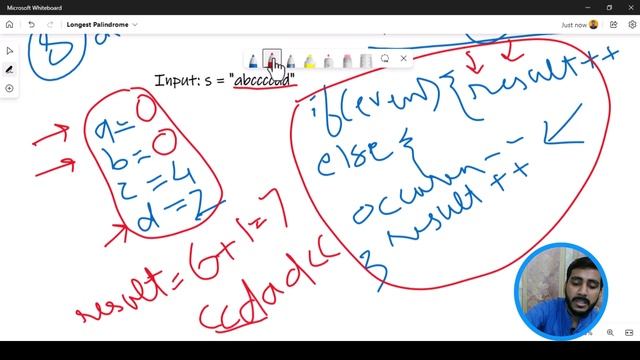 Microsoft Whiteboard
Longest Palindrome
Just now
Input: s = "abccccdd"
if(even){result++
else{
occuren--
result++
}
a=0
b=0
c=4
d=2
result=6+1=7
ccdadcc